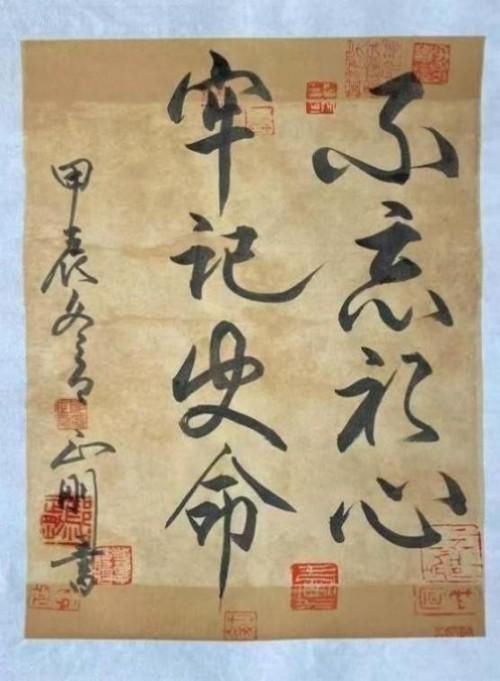 不忘初心
牢记使命
甲辰冬月
正明书